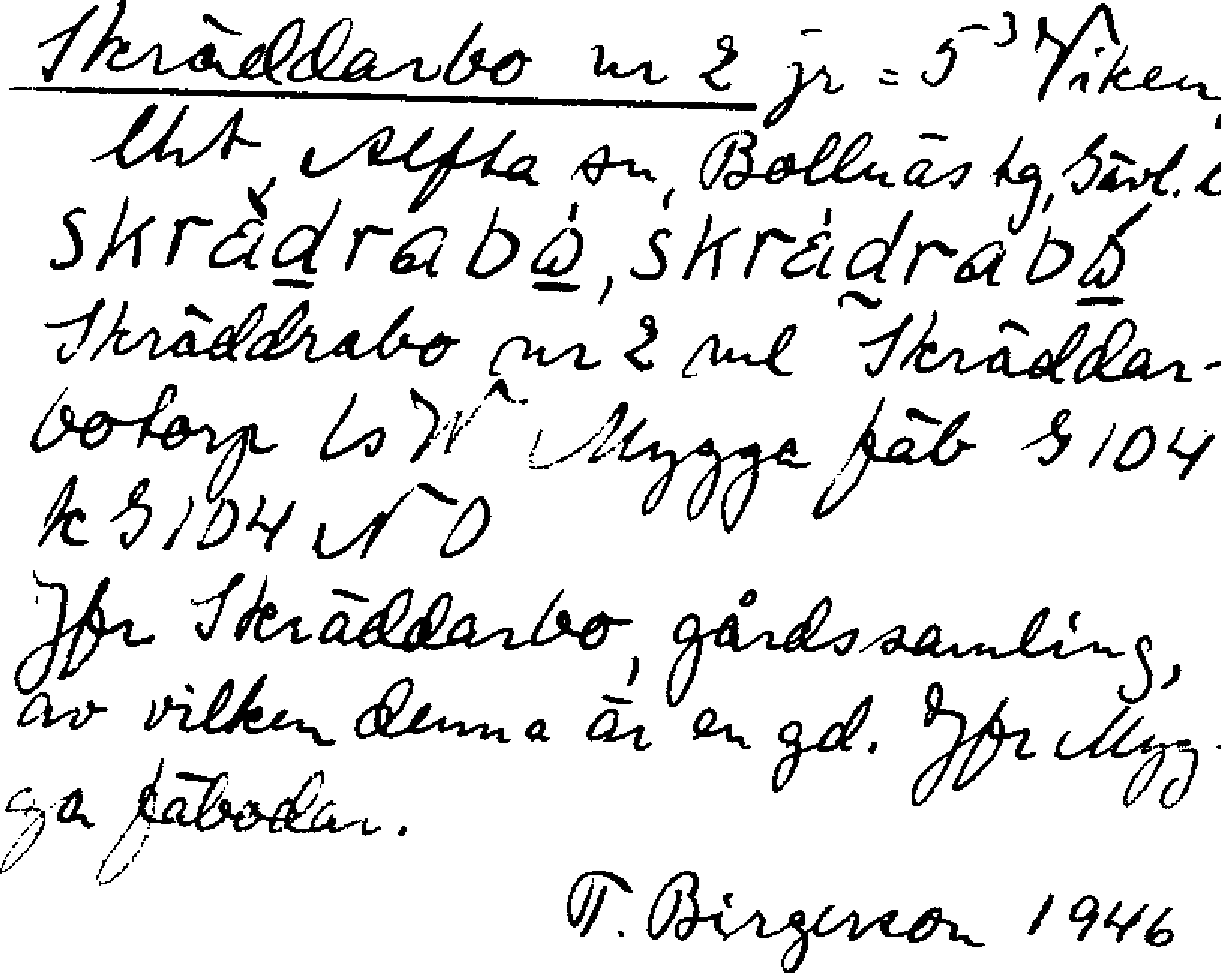 Skräddarbo nr 2 jr = 5³ Viken,
Alfta sn, Bollnäs tg, Gävl. l
skrädrabo, skrädrabo
Skräddrabo nr 2 ml Skräddar-
botorp Mygga fäb G 104
k G 104 NO
Jfr Skräddarbo, gårdssamling,
av vilken denna är en gd. Jfr Myg-
ga fäbodar.
T. Birgerson 1946